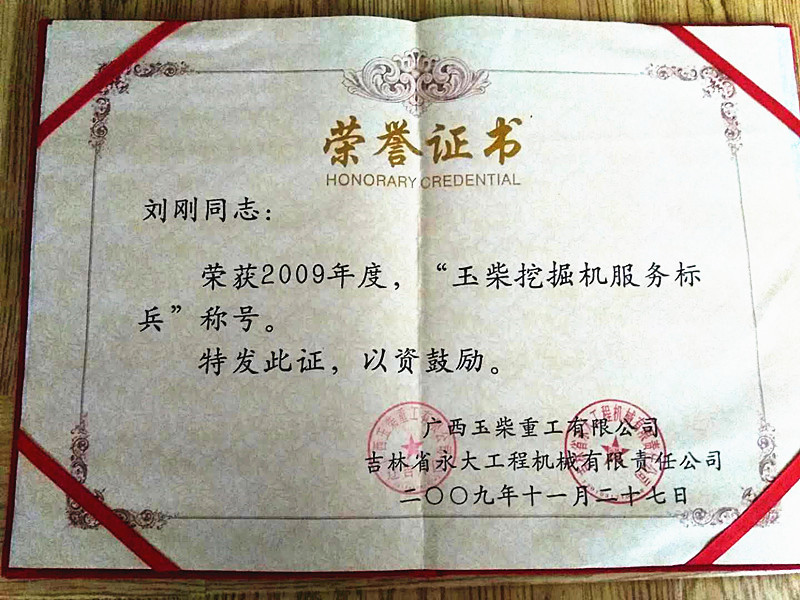 荣誉证书
HONORARY CREDENTIAL
刘刚同志：
荣获2009年度，“玉柴挖掘机服务标
兵”称号。
特发此证，以资鼓励。
广西玉柴重工有限公司
吉林省永大工程机械有限责任公司
二〇〇九年十一月二十七日